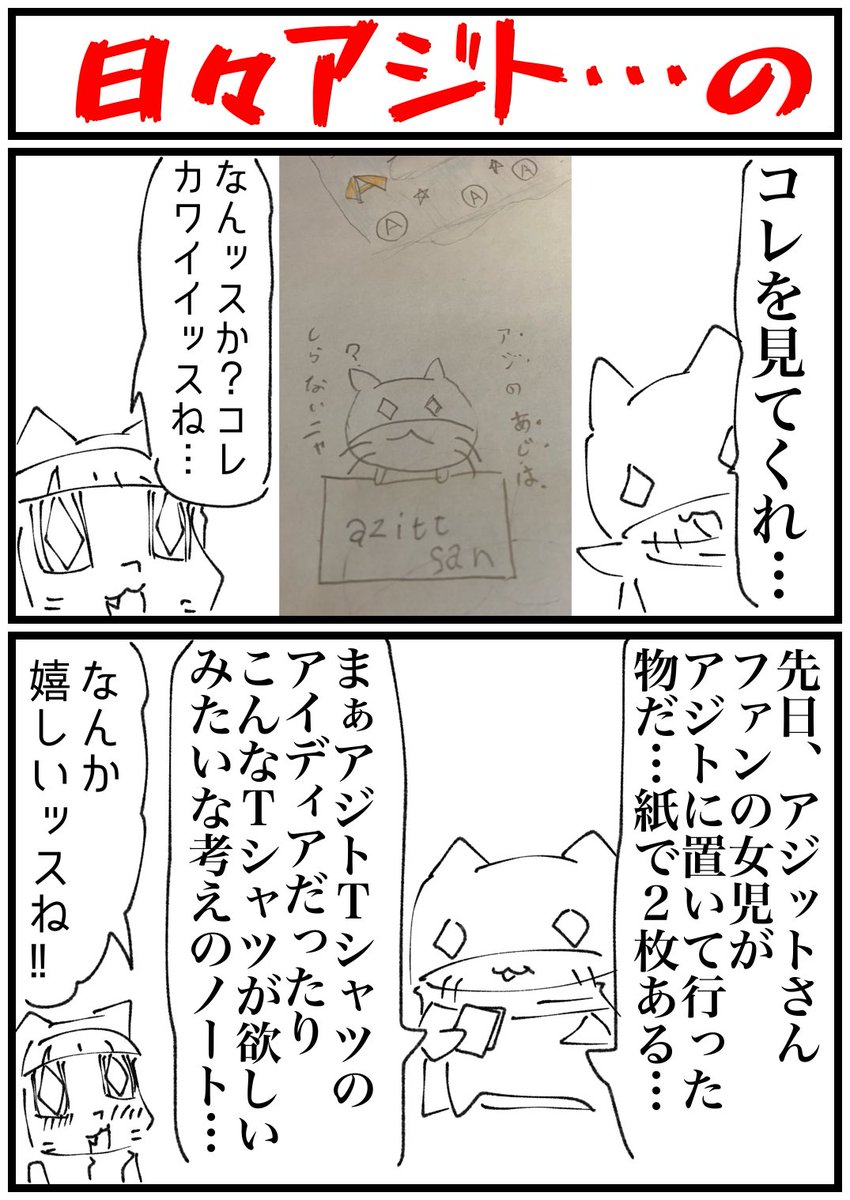 日々アジト…の
コレを見てくれ…
アジのあじは、
しらないニャ
?
azitt
san
A
A
A
A
なんッスか？コレ
カワイイッスね…
先日、アジットさん
ファンの女児が
アジトに置いて行った
物だ…紙で２枚ある…
まぁアジトTシャツの
アイディアだったり
こんなTシャツが欲しい
みたいな考えのノート…
なんか
嬉しいッスね!!